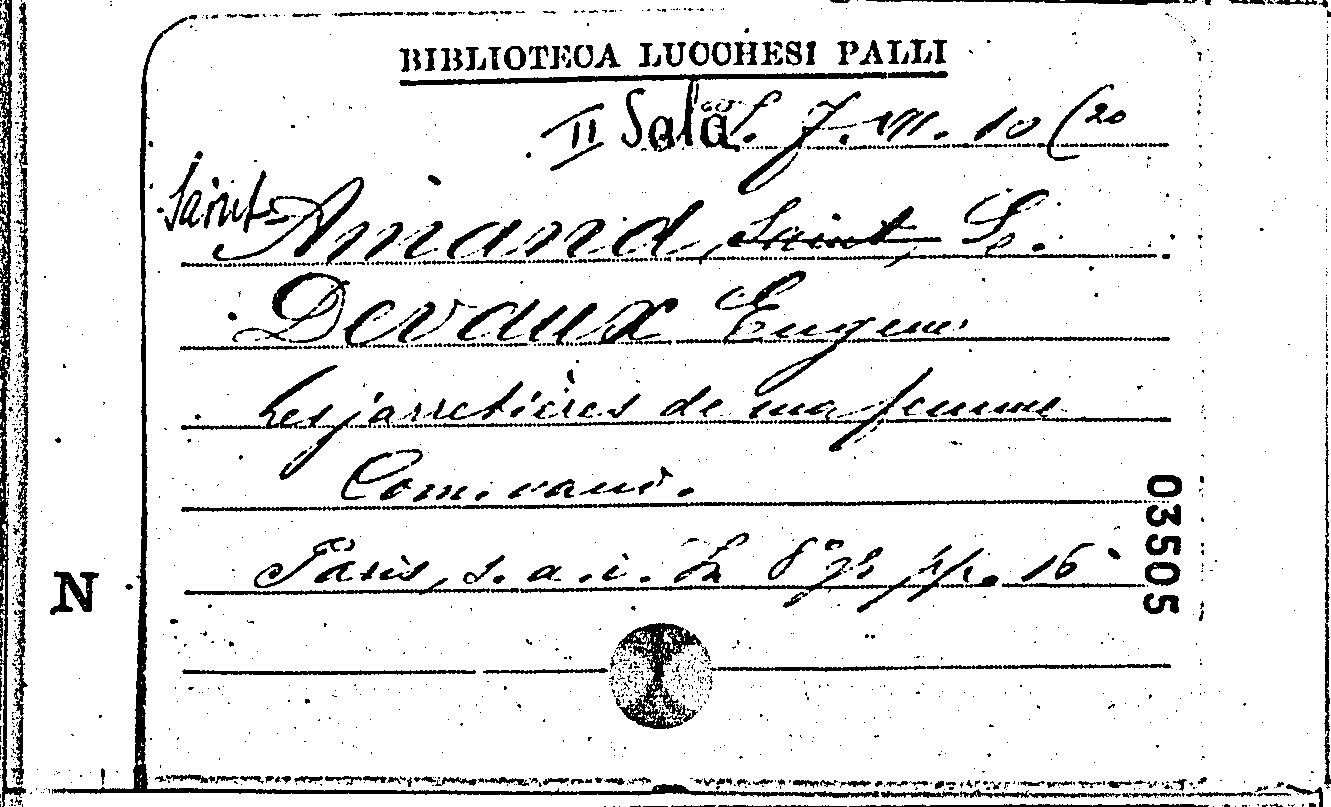 BIBLIOTECA LUCCHESI PALLI
II Sala L. 7. VII. 10 (20
Saint-Amand, Saint, L.
Devaux Eugene
Les jarretières de ma femme
Com. vaud.
Paris, s. a. i. in 8° gr pp. 16
03505
N